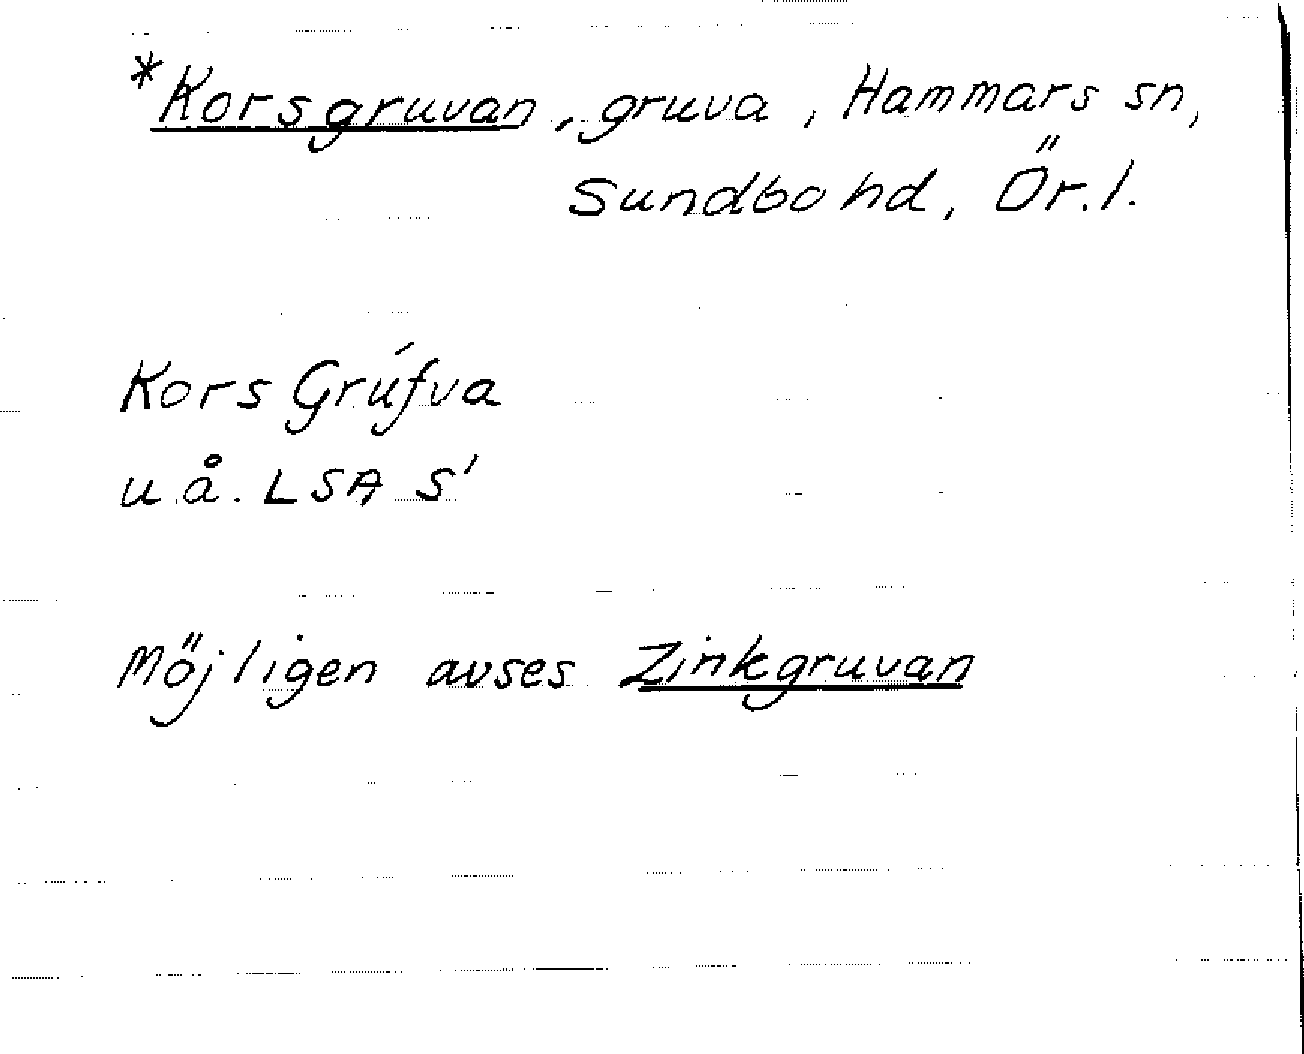 *Korsgruvan, gruva, Hammars sn,
Sundbo hd, Ör.l.
Kors Grúfva
u.å. LSA S'
Möjligen avses Zinkgruvan